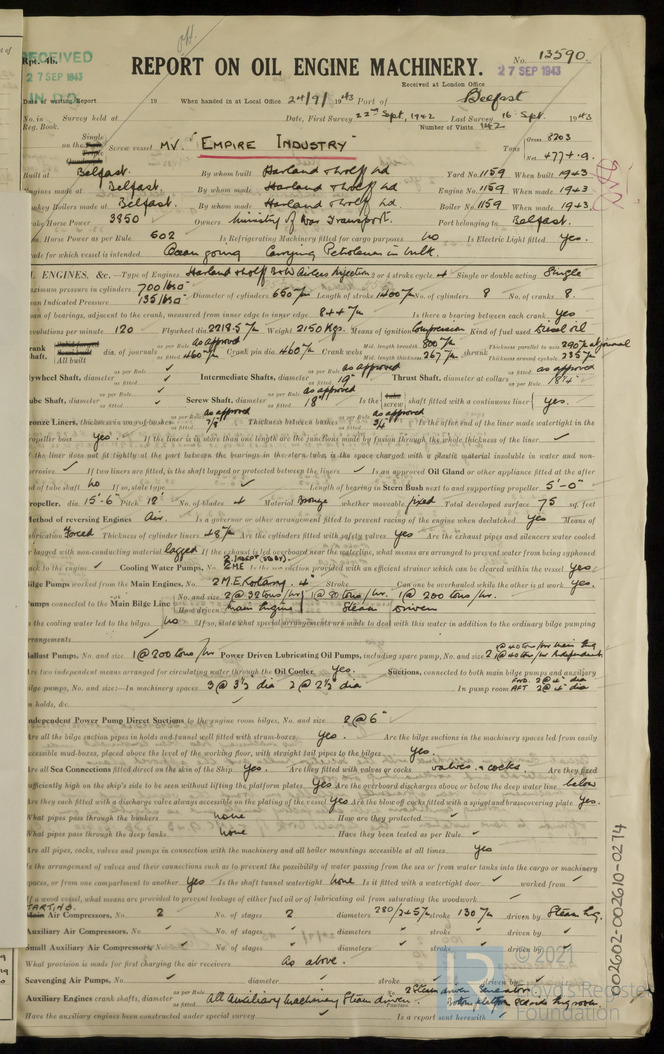 Rpt. 4b.
RECEIVED
27 SEP 1943
IN D.O.
REPORT ON OIL ENGINE MACHINERY.
No. 13590.
27 SEP 1943
Received at London Office
Date of writing Report 19 When handed in at Local Office 24/9/1943 Port of Belfast
No. in Survey held at Date, First Survey 22nd Sept, 1942 Last Survey 16 Sept. 1943
Reg. Book. Number of Visits 142
on the Single Screw vessel MV. "EMPIRE INDUSTRY" Tons Gross 8203 Net 4774.9.
Built at Belfast. By whom built Harland & Wolff Ltd Yard No. 1159 When built 1943
Engines made at Belfast. By whom made Harland & Wolff Ltd Engine No. 1159 When made 1943
Donkey Boilers made at Belfast. By whom made Harland & Wolff Ltd Boiler No. 1159 When made 1943.
Brake Horse Power 3850 Owners Ministry of War Transport. Port belonging to Belfast.
Nom. Horse Power as per Rule 602 Is Refrigerating Machinery fitted for cargo purposes No Is Electric Light fitted Yes.
Trade for which vessel is intended. Ocean going Carrying Petroleum in bulk.
OIL ENGINES, &c.—Type of Engines Harland & Wolff B&W Airless Injection 2 or 4 stroke cycle 4 Single or double acting Single
Maximum pressure in cylinders 700 lbs Diameter of cylinders 650 m/m Length of stroke 1400 m/m No. of cylinders 8 No. of cranks 8.
Mean Indicated Pressure 135 lbs
Span of bearings, adjacent to the crank, measured from inner edge to inner edge 844 m/m Is there a bearing between each crank Yes
Revolutions per minute 120 Flywheel dia. 2218.5 m/m Weight 2150 Kgs. Means of ignition Compression Kind of fuel used Diesel oil
Crank Shaft, All built dia. of journals as per Rule as approved as fitted 460 m/m Crank pin dia. 460 m/m Crank webs Mid. length breadth 800 m/m Mid. length thickness 267 m/m shrunk Thickness parallel to axis 290 m/m at journal Thickness around eyehole 235 m/m
Flywheel Shaft, diameter as per Rule ✓ as fitted ✓ Intermediate Shaft, diameter as per Rule as approved as fitted 19 Thrust Shaft, diameter at collars as per Rule as approved as fitted 18¼
Tube Shaft, diameter as per Rule ✓ as fitted ✓ Screw Shaft, diameter as per Rule as approved as fitted 18" Is the screw shaft fitted with a continuous liner Yes.
Bronze Liners, thickness in way of bushes as per Rule as approved as fitted 7/8" Thickness between bushes as per Rule as approved as fitted 3/4" Is the after end of the liner made watertight in the
propeller boss Yes. If the liner is in more than one length are the junctions made by fusion through the whole thickness of the liner ✓
If the liner does not fit tightly at the part between the bearings in the stern tube, is the space charged with a plastic material insoluble in water and non-
corrosive. ✓ If two liners are fitted, is the shaft lapped or protected between the liners ✓ Is an approved Oil Gland or other appliance fitted at the after
end of tube shaft No If so, state type ✓ Length of bearing in Stern Bush next to and supporting propeller 5'-0"
Propeller, dia. 15'-6" Pitch 12' No. of blades 4 Material Bronze whether moveable fixed Total developed surface 75 sq. feet
Method of reversing Engines Air. Is a governor or other arrangement fitted to prevent racing of the engine when declutched Yes Means of
lubrication Forced Thickness of cylinder liners 48 m/m Are the cylinders fitted with safety valves Yes Are the exhaust pipes and silencers water cooled
or lagged with non-conducting material lagged If the exhaust is led overboard near the waterline, what means are arranged to prevent water from being syphoned
back to the engine ✓ Cooling Water Pumps, No. 2 ME Is the sea suction provided with an efficient strainer which can be cleared within the vessel Yes
Bilge Pumps worked from the Main Engines, No. 2 M.E. Rotary. 4" Stroke Can one be overhauled while the other is at work Yes.
Pumps connected to the Main Bilge Line No. and size 2 @ 38 tons/hr 1 @ 80 tons/hr. 1 @ 200 tons/hr. How driven Main Engine Steam Driven
Is the cooling water led to the bilges No If so, state what special arrangements are made to deal with this water in addition to the ordinary bilge pumping
arrangements ✓
Ballast Pumps, No. and size. 1 @ 200 tons/hr Power Driven Lubricating Oil Pumps, including spare pump, No. and size 2 1 @ 40 tons/hr Main Eng 1 @ 40 tons/hr Independent
Are two independent means arranged for circulating water through the Oil Cooler Yes. Suctions, connected to both main bilge pumps and auxiliary
bilge pumps, No. and size:—In machinery spaces 3 @ 3½ dia 2 @ 2½ dia In pump room FWD. 2 @ 4" dia AFT 2 @ 4" dia
In holds, &c.
Independent Power Pump Direct Suctions to the engine room bilges, No. and size 2 @ 6"
Are all the bilge suction pipes in holds and tunnel well fitted with strum-boxes. Yes. Are the bilge suctions in the machinery spaces led from easily
accessible mud-boxes, placed above the level of the working floor, with straight tail pipes to the bilges Yes.
Are all Sea Connections fitted direct on the skin of the Ship Yes. Are they fitted with valves or cocks valves & cocks. Are they fixed
sufficiently high on the ship's side to be seen without lifting the platform plates Yes Are the overboard discharges above or below the deep water line below
Are they each fitted with a discharge valve always accessible on the plating of the vessel Yes Are the blow off cocks fitted with a spigot and brass covering plate Yes.
What pipes pass through the bunkers None How are they protected ✓
What pipes pass through the deep tanks None Have they been tested as per Rule ✓
Are all pipes, cocks, valves and pumps in connection with the machinery and all boiler mountings accessible at all times Yes
Is the arrangement of valves and their connections such as to prevent the possibility of water passing from the sea or from water tanks into the cargo or machinery
spaces, or from one compartment to another Yes Is the shaft tunnel watertight None Is it fitted with a watertight door ✓ worked from ✓
If a wood vessel, what means are provided to prevent leakage of either fuel oil or of lubricating oil from saturating the woodwork ✓
STARTING Air Compressors, No. 2 No. of stages 2 diameters 280/245 m/m stroke 130 m/m driven by Steam Eng.
Auxiliary Air Compressors, No. ✓ No. of stages ✓ diameters ✓ stroke ✓ driven by ✓
Small Auxiliary Air Compressors, No. ✓ No. of stages ✓ diameters ✓ stroke ✓ driven by ✓
What provision is made for first charging the air receivers As above.
Scavenging Air Pumps, No. ✓ diameter ✓ stroke ✓ driven by ✓
Auxiliary Engines crank shafts, diameter as per Rule as fitted All Auxiliary Machinery Steam driven. No. 2 Steam driven Generators Position
Have the auxiliary engines been constructed under special survey ✓ Is a report sent herewith ✓
002602-002610-0274
© 2021
Lloyd's Register
Foundation